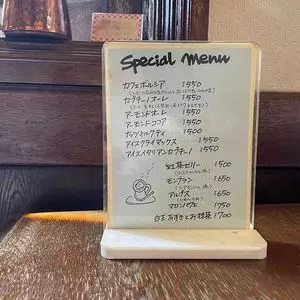 Special Menu
カフェボルシア ¥550
カプチーノオーレ ¥550
アーモンドオレ ¥550
アーモンドココア ¥550
ホットミルクティ ¥500
アイスクライマックス ¥550
アイスイタリアンカプチーノ ¥550
紅茶ゼリー ¥500
モンブラン ¥650
アルプス ¥650
マロンパフェ ¥750
白玉あずきとお抹茶 ¥700